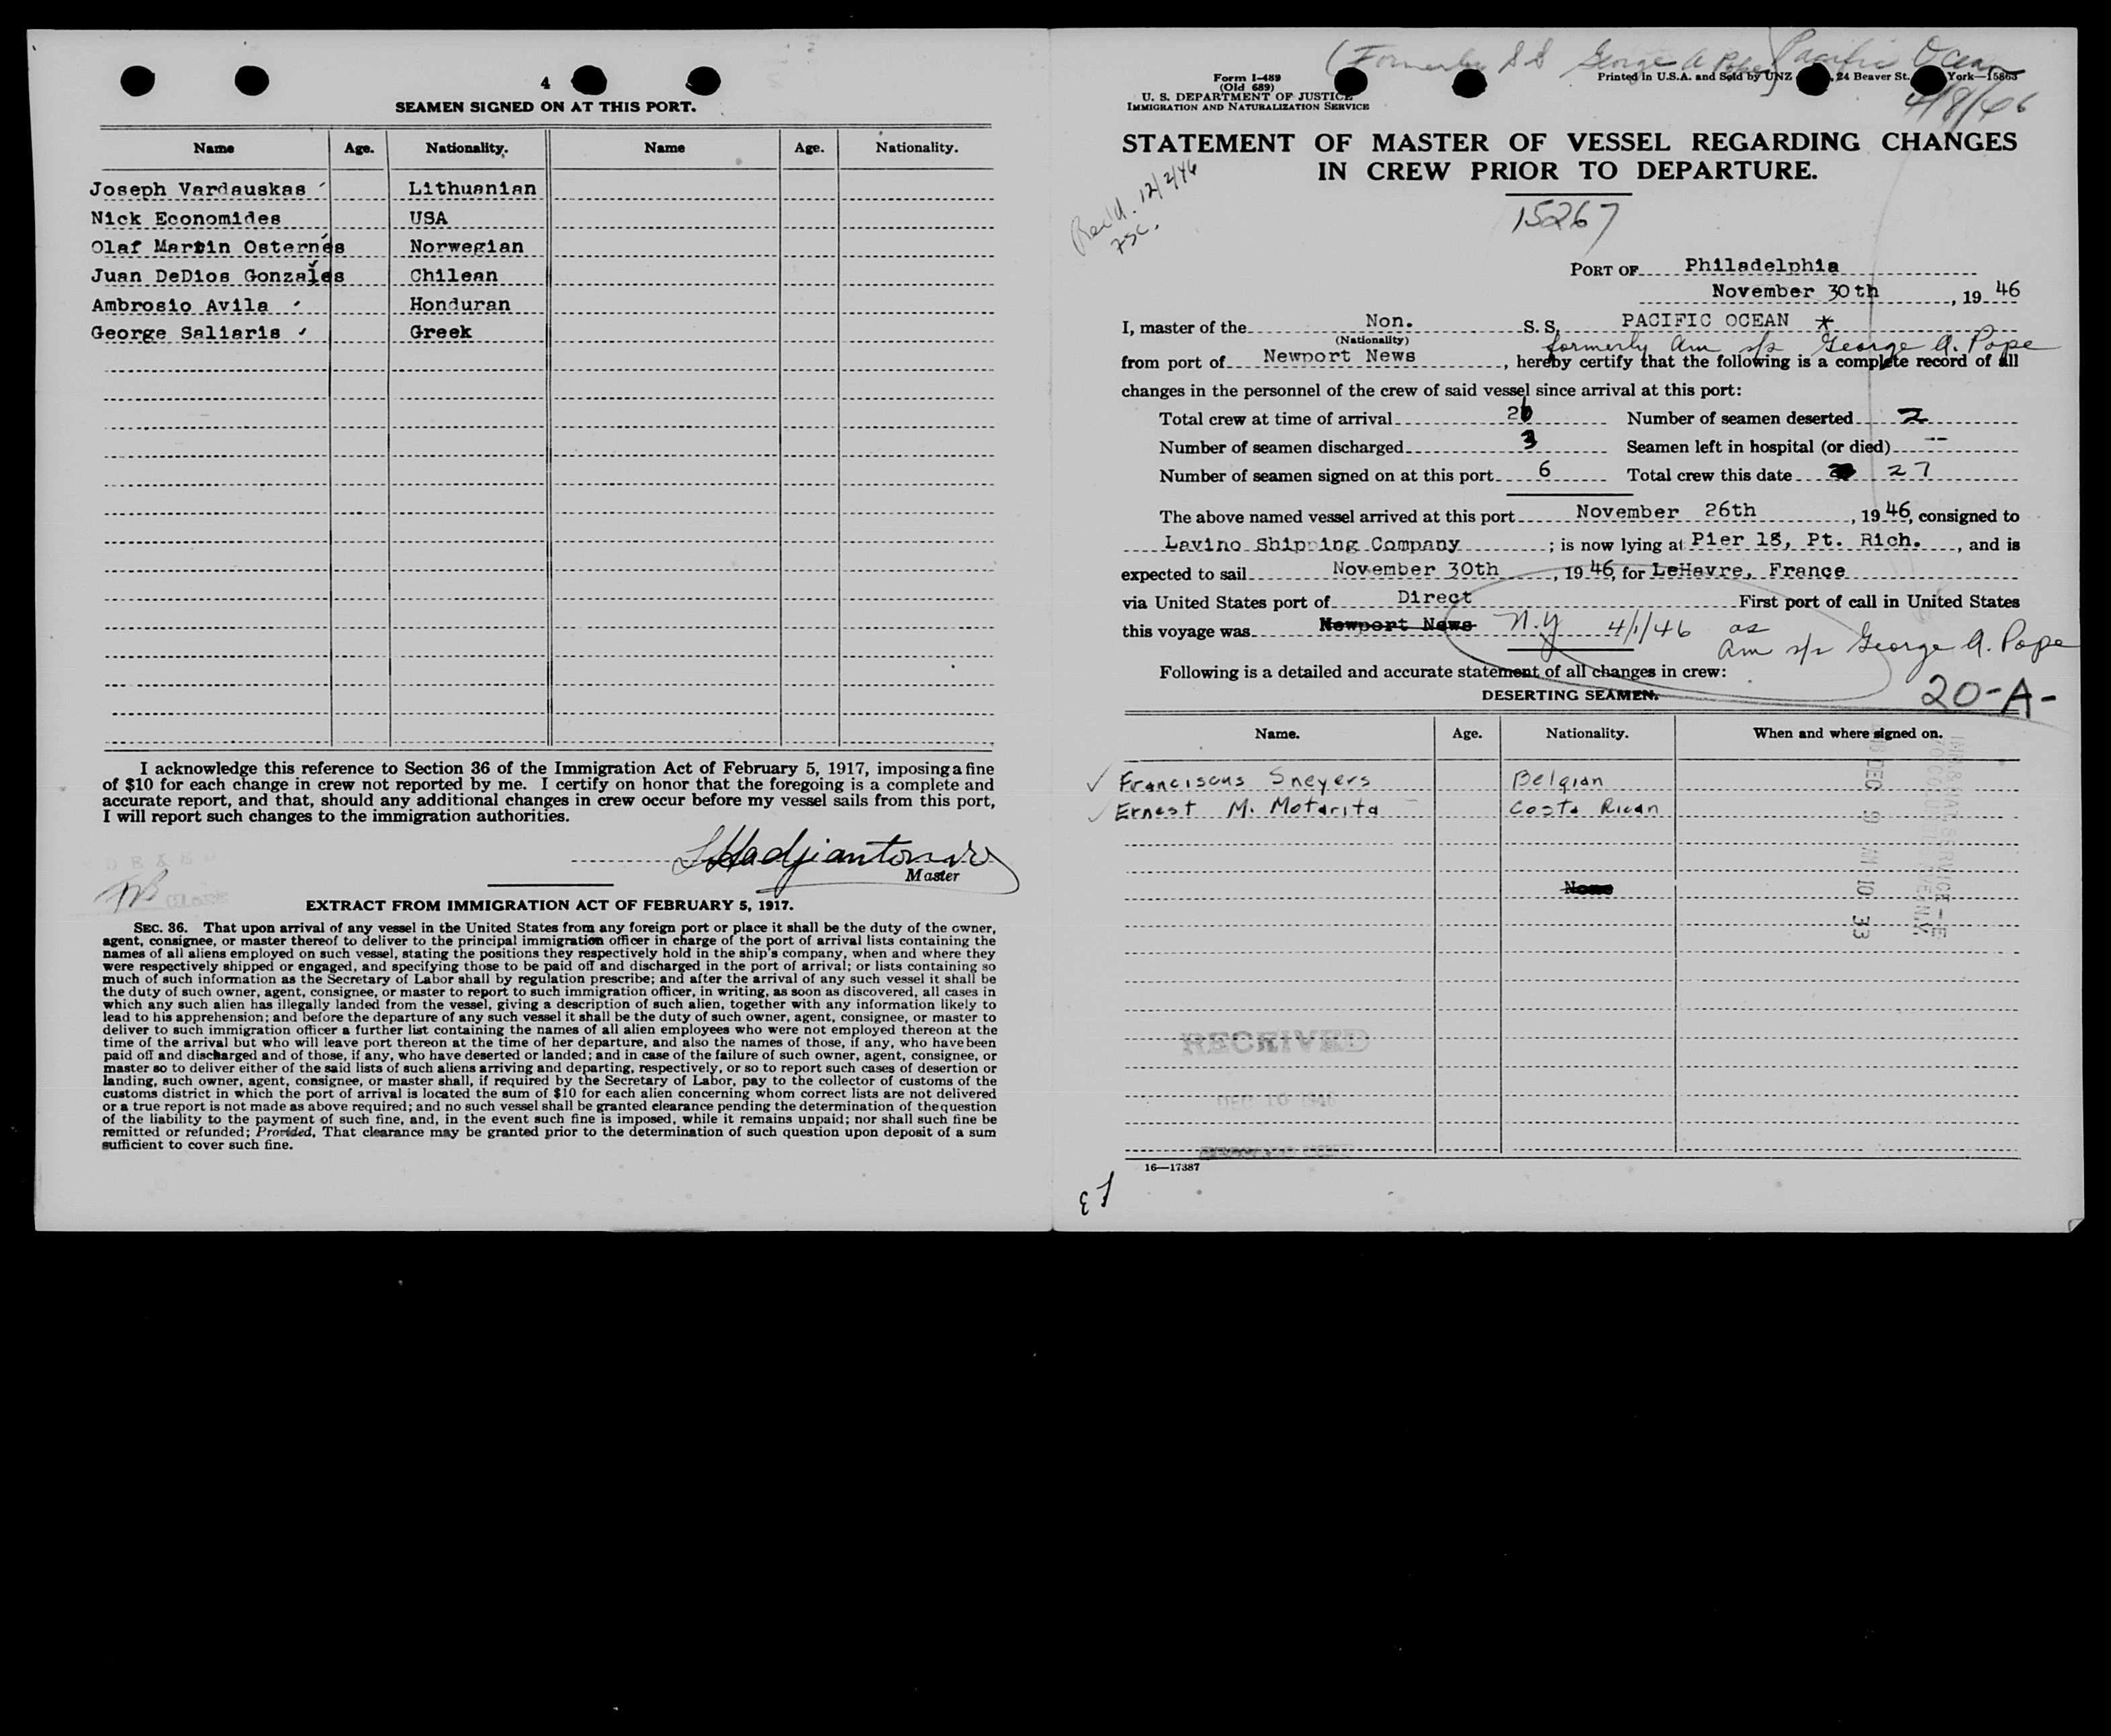 4
SEAMEN SIGNED ON AT THIS PORT.
Name Age. Nationality. Name Age. Nationality.
Joseph Vardauskas Lithuanian
Nick Economides USA
Olaf Martin Osternes Norwegian
Juan DeDios Gonzales Chilean
Ambrosio Avila Honduran
George Saliaris Greek
I acknowledge this reference to Section 36 of the Immigration Act of February 5, 1917, imposing a fine
of $10 for each change in crew not reported by me. I certify on honor that the foregoing is a complete and
accurate report, and that, should any additional changes in crew occur before my vessel sails from this port,
I will report such changes to the immigration authorities.
Master
EXTRACT FROM IMMIGRATION ACT OF FEBRUARY 5, 1917.
SEC. 36. That upon arrival of any vessel in the United States from any foreign port or place it shall be the duty of the owner,
agent, consignee, or master thereof to deliver to the principal immigration officer in charge of the port of arrival lists containing the
names of all aliens employed on such vessel, stating the positions they respectively hold in the ship's company, when and where they
were respectively shipped or engaged, and specifying those to be paid off and discharged in the port of arrival; or lists containing so
much of such information as the Secretary of Labor shall by regulation prescribe; and after the arrival of any such vessel it shall be
the duty of such owner, agent, consignee, or master to report to such immigration officer, in writing, as soon as discovered, all cases in
which any such alien has illegally landed from the vessel, giving a description of such alien, together with any information likely to
lead to his apprehension; and before the departure of any such vessel it shall be the duty of such owner, agent, consignee, or master to
deliver to such immigration officer a further list containing the names of all alien employees who were not employed thereon at the
time of the arrival but who will leave port thereon at the time of her departure, and also the names of those, if any, who have been
paid off and discharged and of those, if any, who have deserted or landed; and in case of the failure of such owner, agent, consignee, or
master so to deliver either of the said lists of such aliens arriving and departing, respectively, or so to report such cases of desertion or
landing, such owner, agent, consignee, or master shall, if required by the Secretary of Labor, pay to the collector of customs of the
customs district in which the port of arrival is located the sum of $10 for each alien concerning whom correct lists are not delivered
or a true report is not made as above required; and no such vessel shall be granted clearance pending the determination of the question
of the liability to the payment of such fine, and, in the event such fine is imposed, while it remains unpaid; nor shall such fine be
remitted or refunded; Provided, That clearance may be granted prior to the determination of such question upon deposit of a sum
sufficient to cover such fine.
(Formerly SS George A Pope) Pacific Ocean
Form I-489
(Old 689)
U. S. DEPARTMENT OF JUSTICE
IMMIGRATION AND NATURALIZATION SERVICE
Printed in U.S.A. and Sold by UNZ 24 Beaver St. York—15863
STATEMENT OF MASTER OF VESSEL REGARDING CHANGES
IN CREW PRIOR TO DEPARTURE.
Rec'd. 12/2/46
15267
PORT OF Philadelphia
November 30th, 19 46
I, master of the Non. S. S. PACIFIC OCEAN *
(Nationality) formerly Am s/s George A. Pope
from port of Newport News, hereby certify that the following is a complete record of all
changes in the personnel of the crew of said vessel since arrival at this port:
Total crew at time of arrival 26 Number of seamen deserted 2
Number of seamen discharged 3 Seamen left in hospital (or died) --
Number of seamen signed on at this port 6 Total crew this date 27
The above named vessel arrived at this port November 26th, 19 46, consigned to
Lavino Shipping Company; is now lying at Pier 18, Pt. Rich., and is
expected to sail November 30th, 19 46, for LeHavre, France
via United States port of Direct First port of call in United States
this voyage was Newport News N.Y 4/1/46 as
Am s/s George A. Pope
Following is a detailed and accurate statement of all changes in crew:
DESERTING SEAMEN.
20-A-
Name. Age. Nationality. When and where signed on.
Franciscus Sneyers Belgian
Ernest M. Motarita Costa Rican
None
DEC 9 AM 10 33
RECEIVED
DEC 10 1946
16—17387